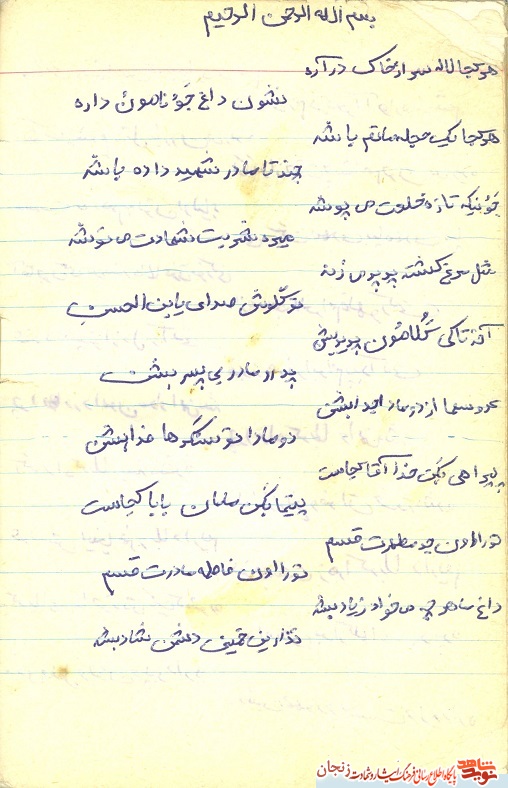 بسم الله الرحمن الرحیم
هر کجا لاله سر از خاک در آره
نشون داغ جَوُ نامونُ داره
هر کجا یک حجله ماتم باشه
چند تا مادر شهید داده باشه
جَوُنیکه تازه خلعت می پوشه
میره شربت شهادت می نوشه
مثل مرغ کشته پرپر می زنه
تو گلوش صدای یابن الحسنِ
آخه تا کی گُلامون پرپرشن
پدر و مادر بی پسر بشن
عروسا از دوماد جدا بشن
دومادا تو سنگرها فدا بشن
پیرا هی بگن خدا آقا کجاست
یتیما بگن مامان بابا کجاست
تو را اون جد مطهرت قسم
تو را اون فاطمه مادرت قسم
داغ ما هر چه می خواد زیاد بشه
نذار این خمینی دشمن شاد بشه
نوید شاهد
پایگاه اطلاع رسانی فرهنگ ایثار و شهادت زنجان